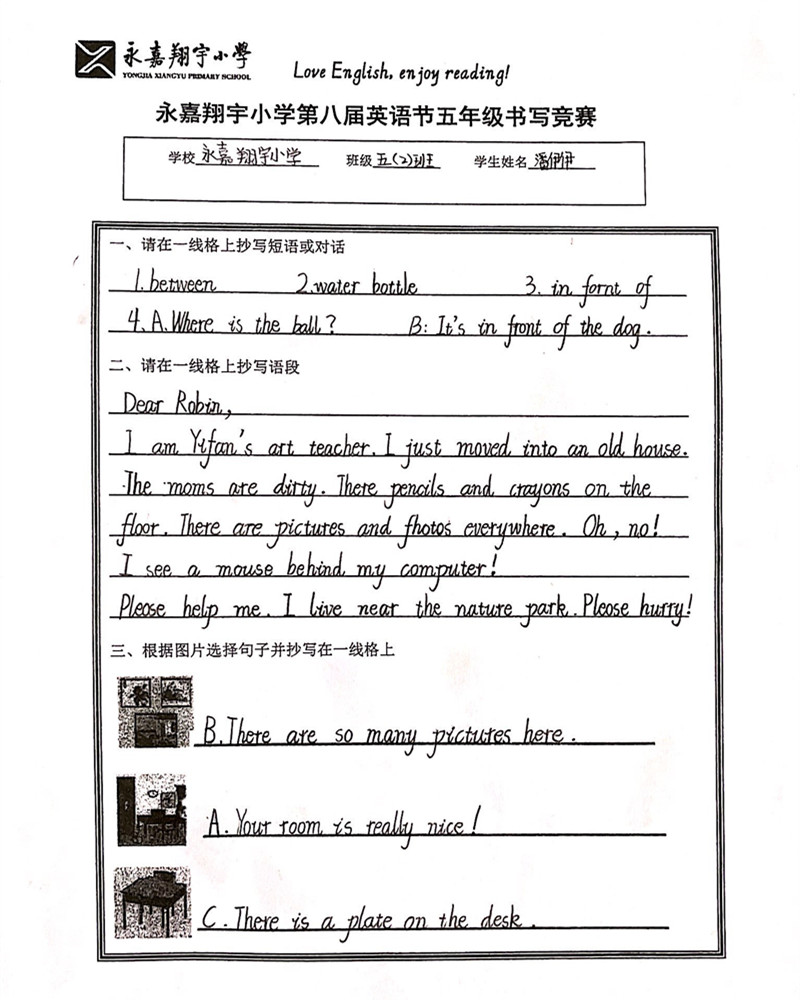 永嘉翔宇小學
YONGJIA XIANGYU PRIMARY SCHOOL
Love English, enjoy reading!
永嘉翔宇小学第八届英语节五年级书写竞赛
学校 永嘉翔宇小学 班级 五(2)班 学生姓名 潘伊伊
一、请在一线格上抄写短语或对话
1. between 2. water bottle 3. in fornt of
4. A. Where is the ball? B: It's in front of the dog.
二、请在一线格上抄写语段
Dear Robin,
I am Yifan's art teacher. I just moved into an old house.
The moms are dirty. There pencils and crayons on the
floor. There are pictures and fhotos everywhere. Oh, no!
I see a mouse behind my computer!
Please help me. I live near the nature park. Please hurry!
三、根据图片选择句子并抄写在一线格上
B. There are so many pictures here.
A. Your room is really nice!
C. There is a plate on the desk.